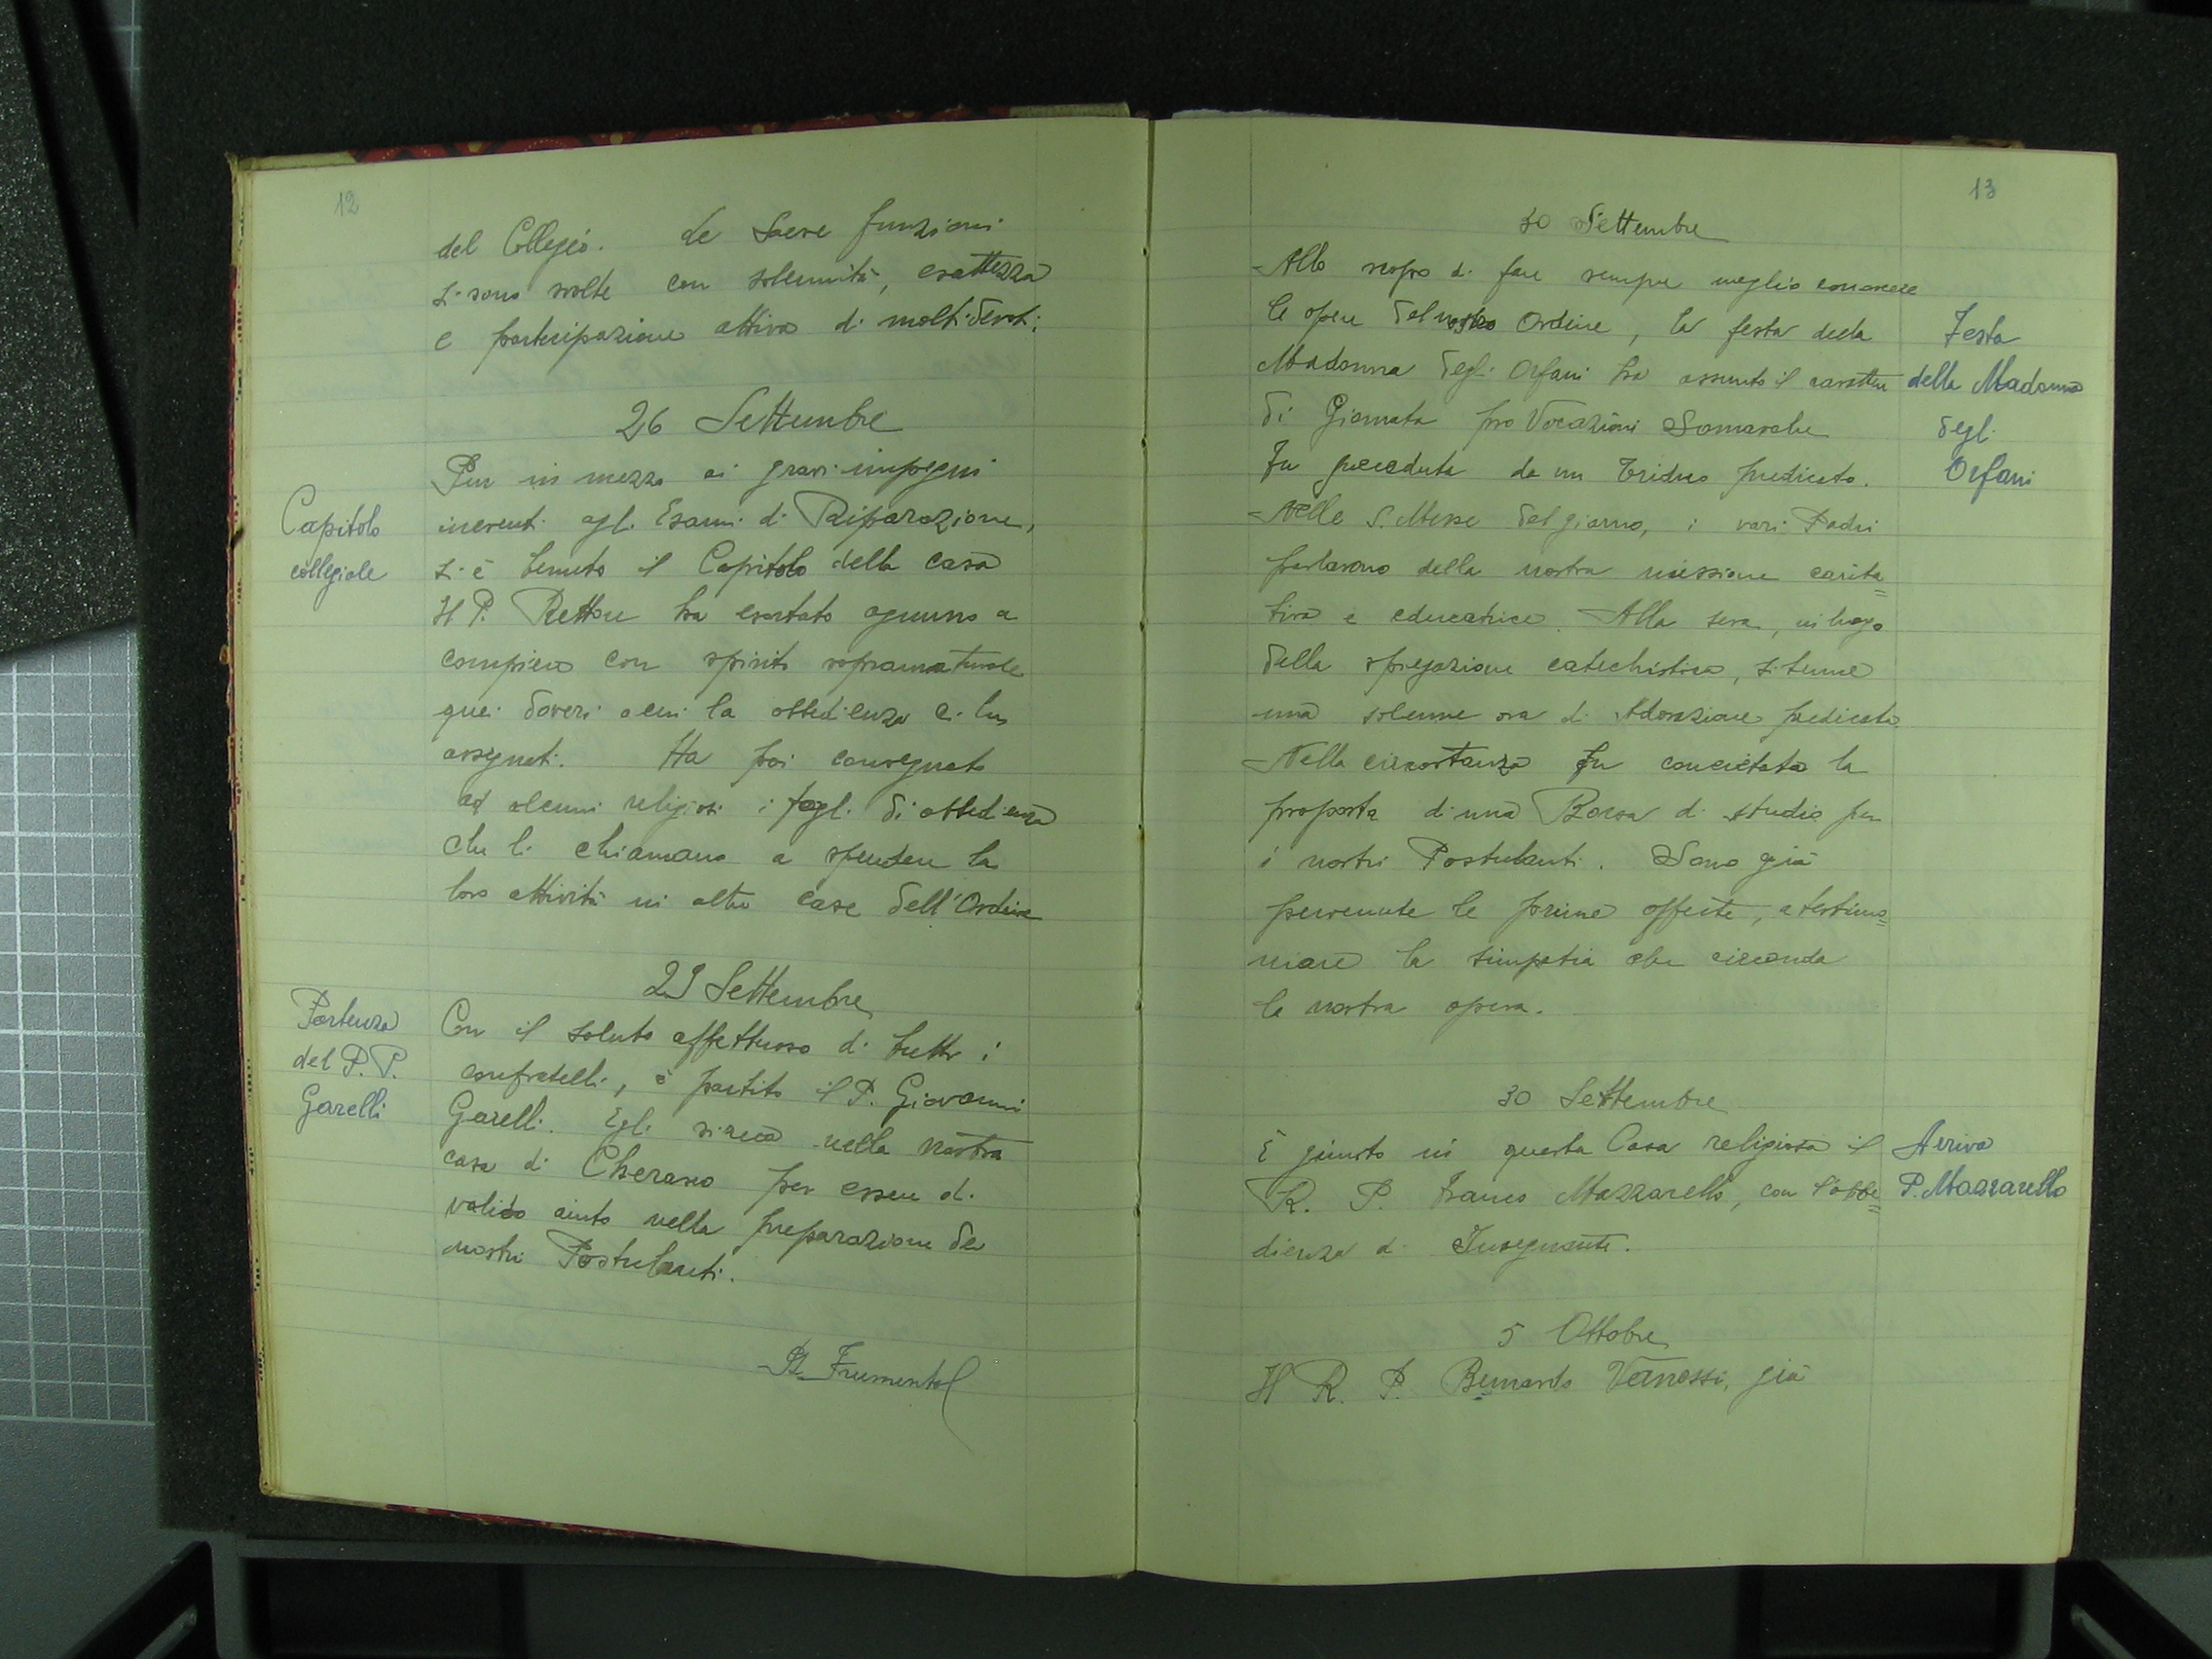 12
del Collegio. Le Sacre funzioni
si sono svolte con solennità, esattezza
e partecipazione attiva di molti devoti.
26 Settembre
Pur in mezzo ai gravi impegni
Capitolo
collegiale
inerenti agli Esami di Riparazione,
si è tenuto il Capitolo della casa
Il P. Rettore ha esortato ognuno a
compiere con spirito soprannaturale
quei doveri a cui la obbedienza ci ha
assegnati. Ha poi consegnato
ad alcuni religiosi i fogli di obbedienza
che li chiamano a spendere la
loro attività in altre case dell'Ordine
29 Settembre
Partenza
del P. P.
Garelli
Con il saluto affettuoso di tutti i
confratelli, è partito il P. Giovanni
Garelli. Egli si reca nella nostra
casa di Cherasco per essere di
valido aiuto nella preparazione dei
nostri Postulanti.
P. Frumento
13
30 Settembre
Allo scopo di fare sempre meglio conoscere
le opere del nostro Ordine, la festa della
Madonna degli Orfani ha assunto il carattere
di Giornata pro Vocazioni Somasche
Fu preceduta da un triduo predicato.
Festa
della Madonna
degli
Orfani
Nelle S. Messe del giorno, i vari Padri
parlarono della nostra missione carita=
tiva e educatrice. Alla sera, in luogo
della spiegazione catechistica, si tenne
una solenne ora di Adorazione predicata.
Nella circostanza fu concretata la
proposta di una Borsa di studio per
i nostri Postulanti. Sono già
pervenute le prime offerte, a testimo=
niare la simpatia che circonda
la nostra opera.
30 Settembre
È giunto in questa Casa religiosa il
R. P. Franco Mazzarello, con l'obbe=
dienza di Insegnante.
Arrivo
P. Mazzarello
5 Ottobre
Il R. P. Bernardo Vanossi, già